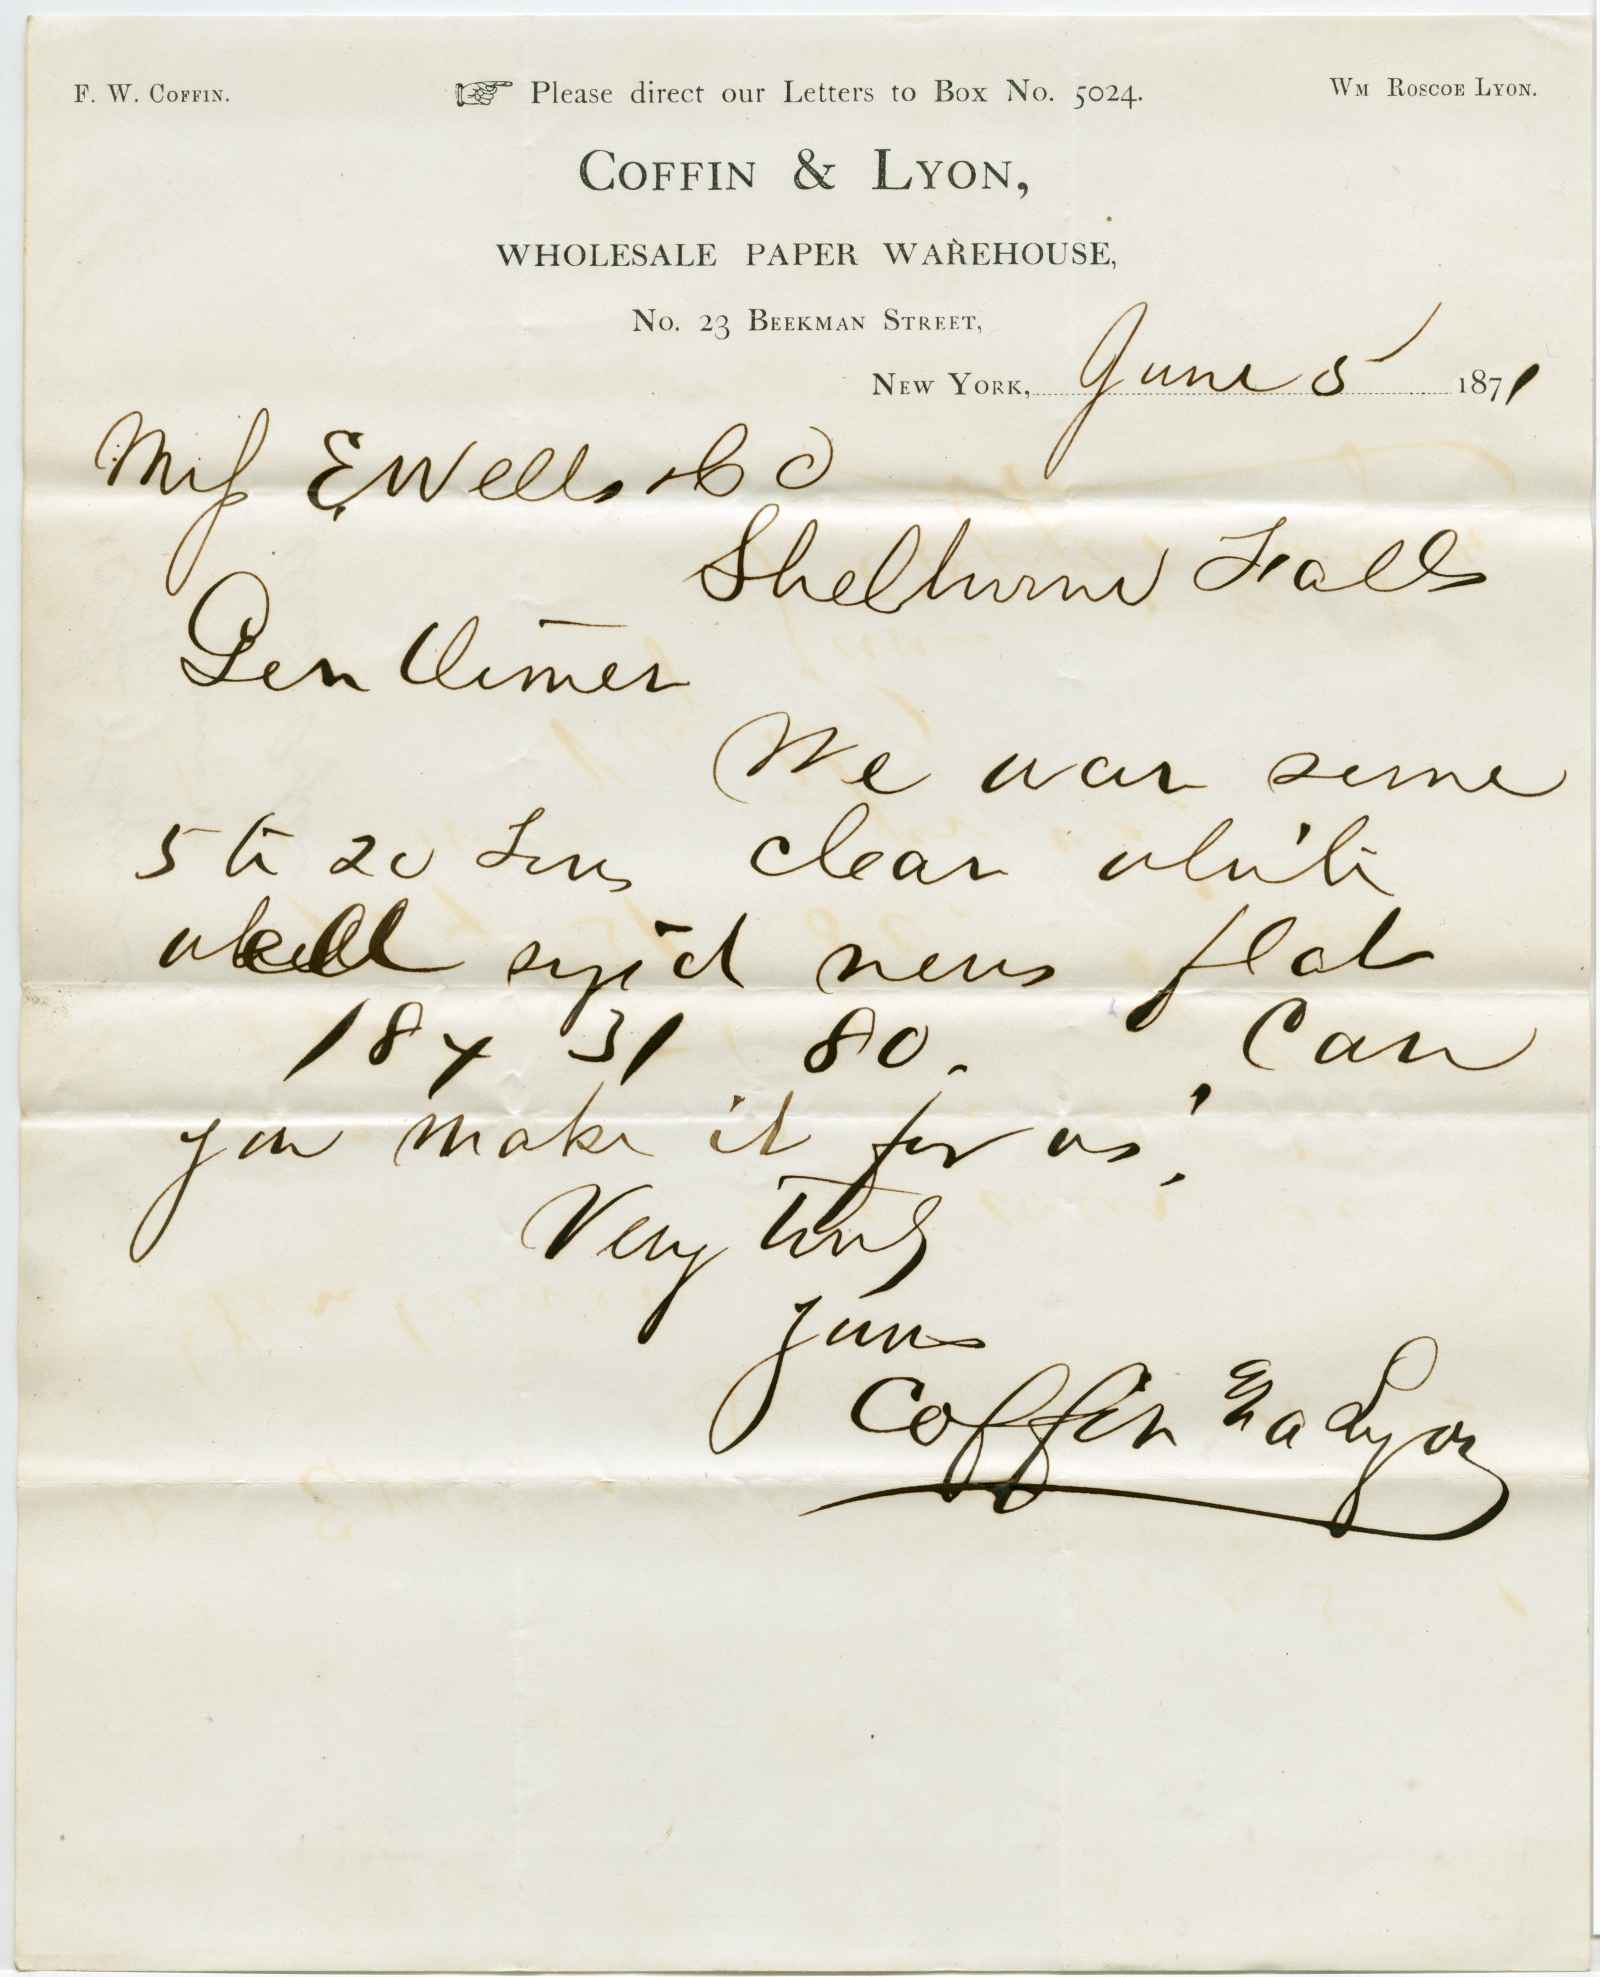 F. W. COFFIN.
☞ Please direct our Letters to Box No. 5024.
WM ROSCOE LYON.
COFFIN & LYON,
WHOLESALE PAPER WAREHOUSE,
No. 23 BEEKMAN STREET,
NEW YORK, June 5 1871
E Wells & Co
Shelburne Falls
Gentlemen
We want some
5 to 20 Tons clear white
well sized news flat
18 x 31 80. Can
you make it for us?
Very Truly
Yours
Coffin & Lyon